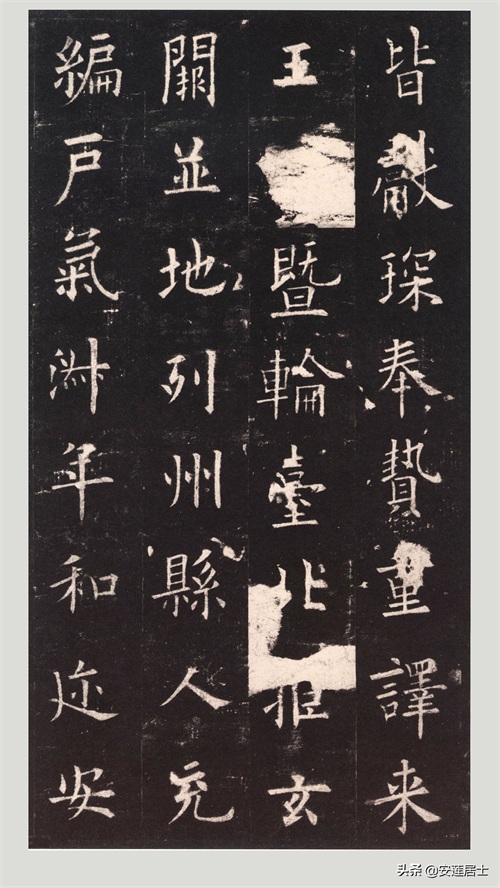 皆獻琛奉贄重譯来
王暨輪臺北拒玄
闕並地列州縣人充
編戶氣淑年和迩安
头条 @安莲居士